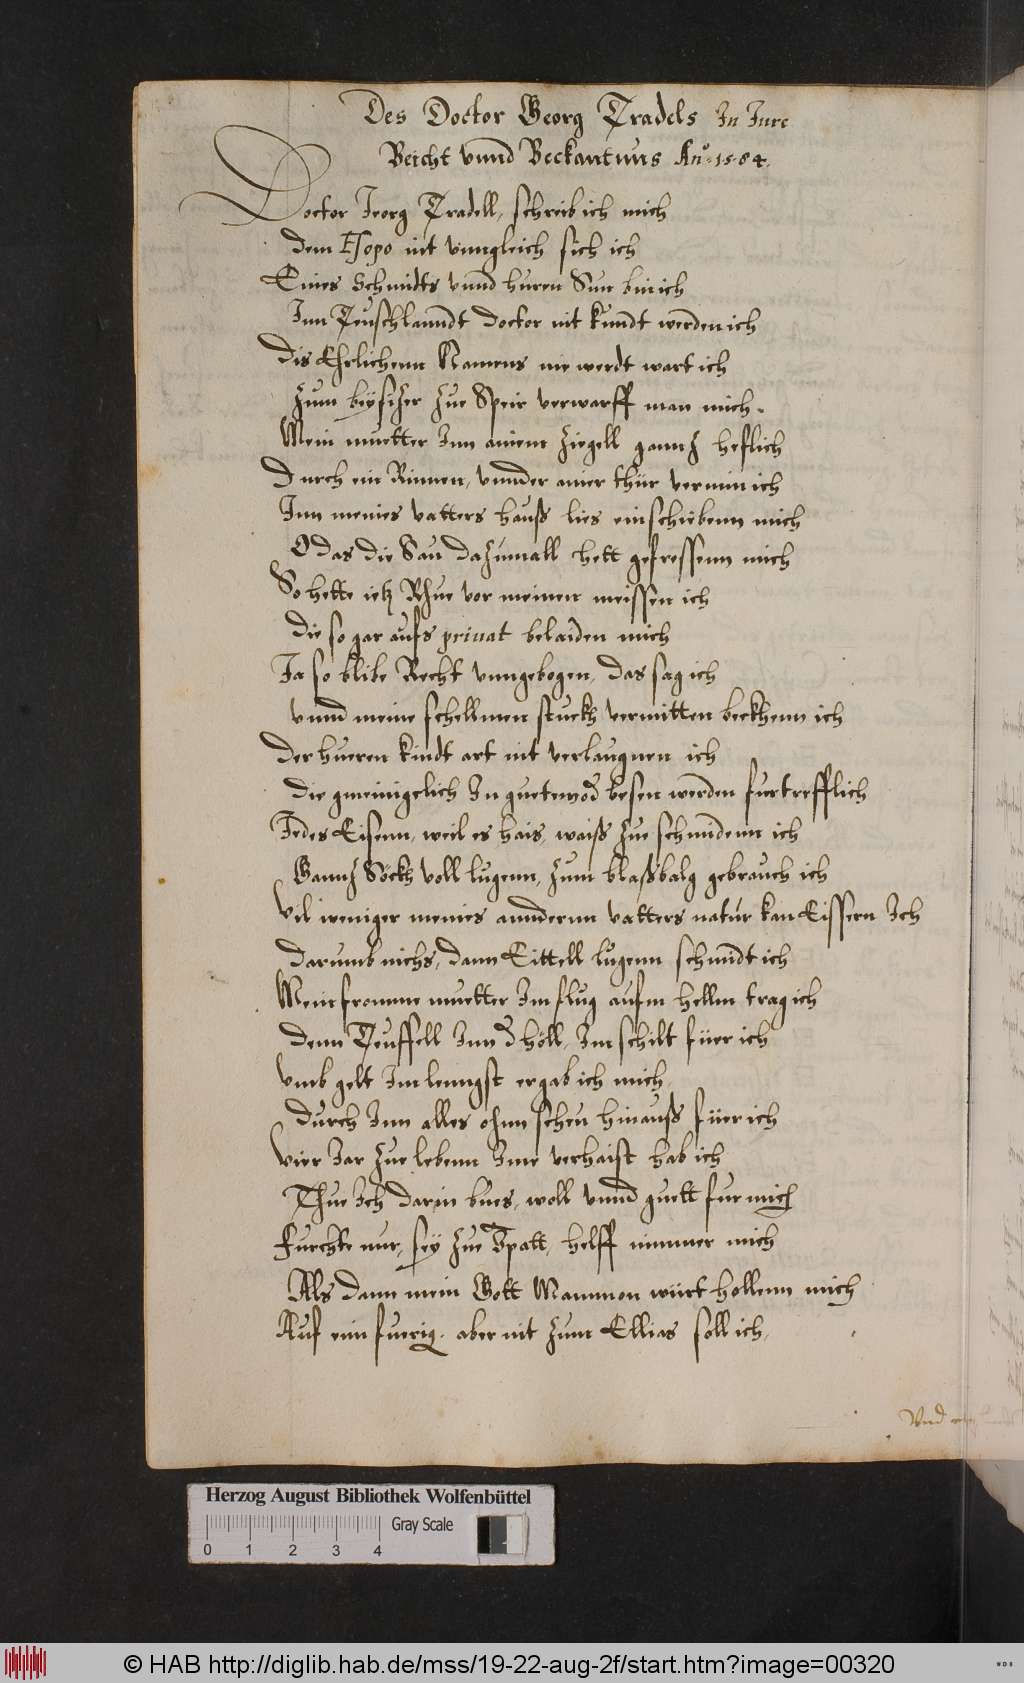 Des Doctor Georg Tradels In Jure
Beicht vnnd Beckantnus Ao. 1584.
Doctor Jeorg Tradell, schreib ich mich
dem Esopo nit vnngleich sich ich
Eines Schmidts vnnd huren Sun bin ich
Inn Teuschlanndt doctor nit kundt werden ich
dis Ehrlichenn Namens nie werdt wart ich
Zum beysizer zue Speir verwarff man mich.
Mein muetter Inn ainem ziegell gannz heflich
Durch ein Rinnen, vnnder ainer thür vermein ich
Inn meines vatters hauß lies einschiebenn mich
O das die Sau dazumall hett gefressenn mich
So hette ich Rhue vor meinen meissen ich
die so gar aufs priuat belaiden mich
Ja so blibe Recht vnngebogen, das sag ich
vnnd meine schellmen stuckh vermitten beckhenn ich
der hueren kindt art nit verlaugnen ich
die gmeinigelich In guetem od besen werden furtrefflich
Jedes Eisenn, weil es hais, waiß zue schmidenn ich
Gannz Söckh voll lugenn, zum blaßbalg gebrauch ich
Vil weniger meines anndernn vatters natur kan Eissern Ich
darumb nichs, dann Eittell lugenn schmidt ich
Mein fromme muetter Im flug aufm hellm trag ich
denn Teuffell Inn d höll, Im schilt füer ich
vmb gelt Im lenngst ergab ich mich,
durch Inn alles ohnn scheu hinauß füer ich
Vier Jar zue lebenn Ime verhaist hab ich
Thue Ich darin bues, woll vnnd guett fur mich
Furchte nur, sey zue Spatt, helff nimmer mich
Als dann mein Gott Mammon würt hollenn mich
Auf ein fuerig. aber nit zum Ellias soll ich,
Vnd
Herzog August Bibliothek Wolfenbüttel
Gray Scale
0 1 2 3 4
© HAB http://diglib.hab.de/mss/19-22-aug-2f/start.htm?image=00320